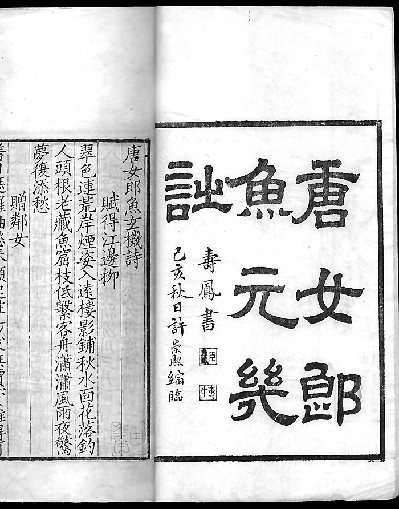 唐女郎
魚元幾
詩
壽鳳書
己亥秋日許崇熙縮臨
唐女郎魚玄機詩
賦得江邊柳
翠色連荒岸煙姿入遠樓影鋪秋水面花落釣
人頭根老藏魚窟枝低繫客舟瀟瀟風雨夜驚
夢復添愁
贈鄰女